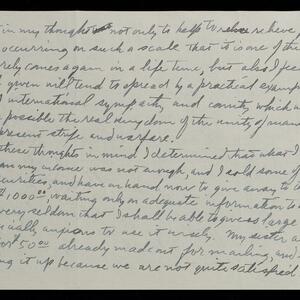 in my thought not only to help to relieve
ocurring on such a scale that it is one of th
rely comes again in a life time, but also I fee
given will tend to spread by a practical examp
international sympathy and comity, which a
possible the real wisdom of the unity of man
present strife and warfare.
these thoughts in mind I determined that what I
my income was not enough, and I sold some of
curities, and have on hand now to give away to
$1000.00, waiting only on adequate information to
very seldom that I shall be able to give so large
ually anxious to use it wisely. My sister a
for $50.00 already made out for mailing, and
ng it up because we are not quite satisfied